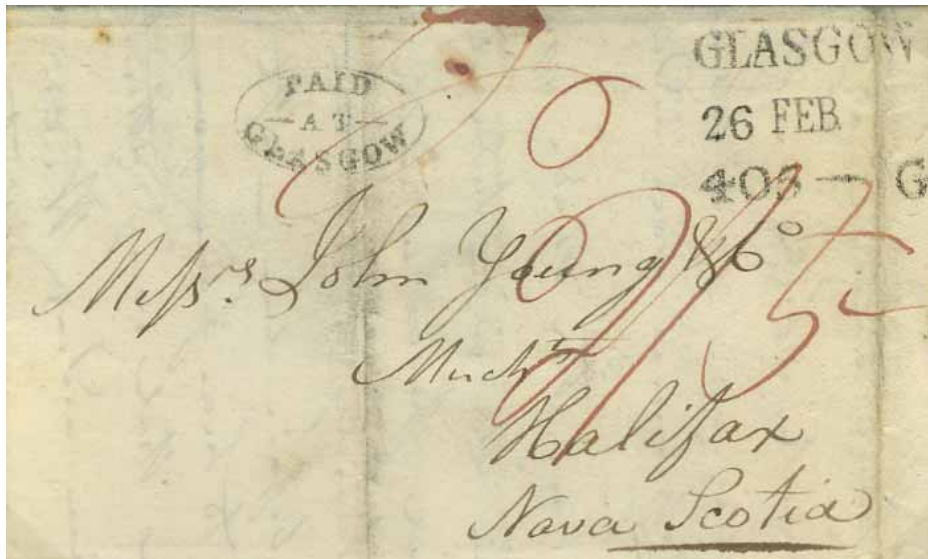 PAID
AT
GLASGOW
GLASGOW
26 FEB
405 — G
Messrs John Young & Co
Mercht
Halifax
Nova Scotia